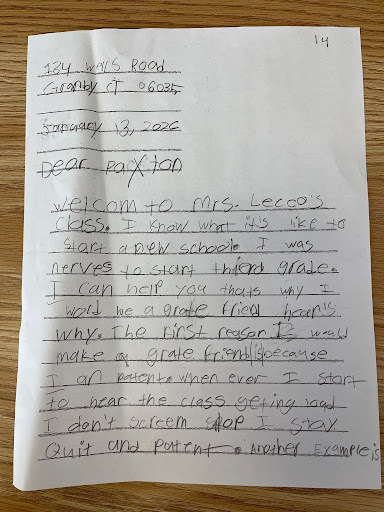 14
134 Wells Road
Granby CT 06035
January 13, 2026
Dear Paixton
Welcom to Mrs. Lecco's
class. I know what it's like to
start a new school. I was
nerves to start thierd grade.
I can help you thats why I
word be a grate fried hear is
why. The first reason I would
make a grate friend is because
I an patent. when ever I start
to hear the class geting loud
I don't screem stop I stay
Quit and patent. Another Example is